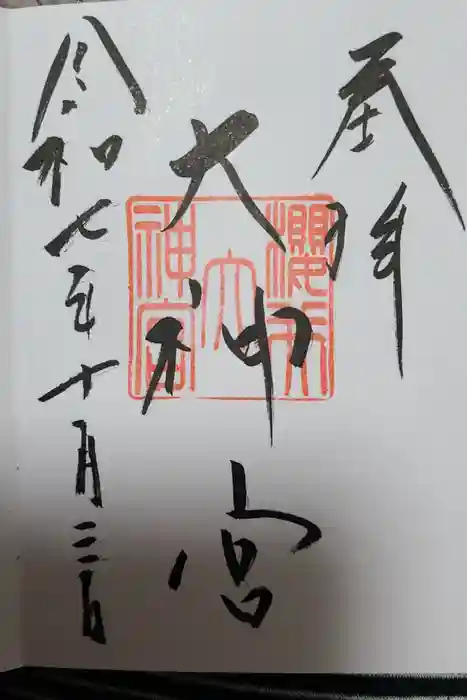 奉拝
大神宮
令和七年十月三日